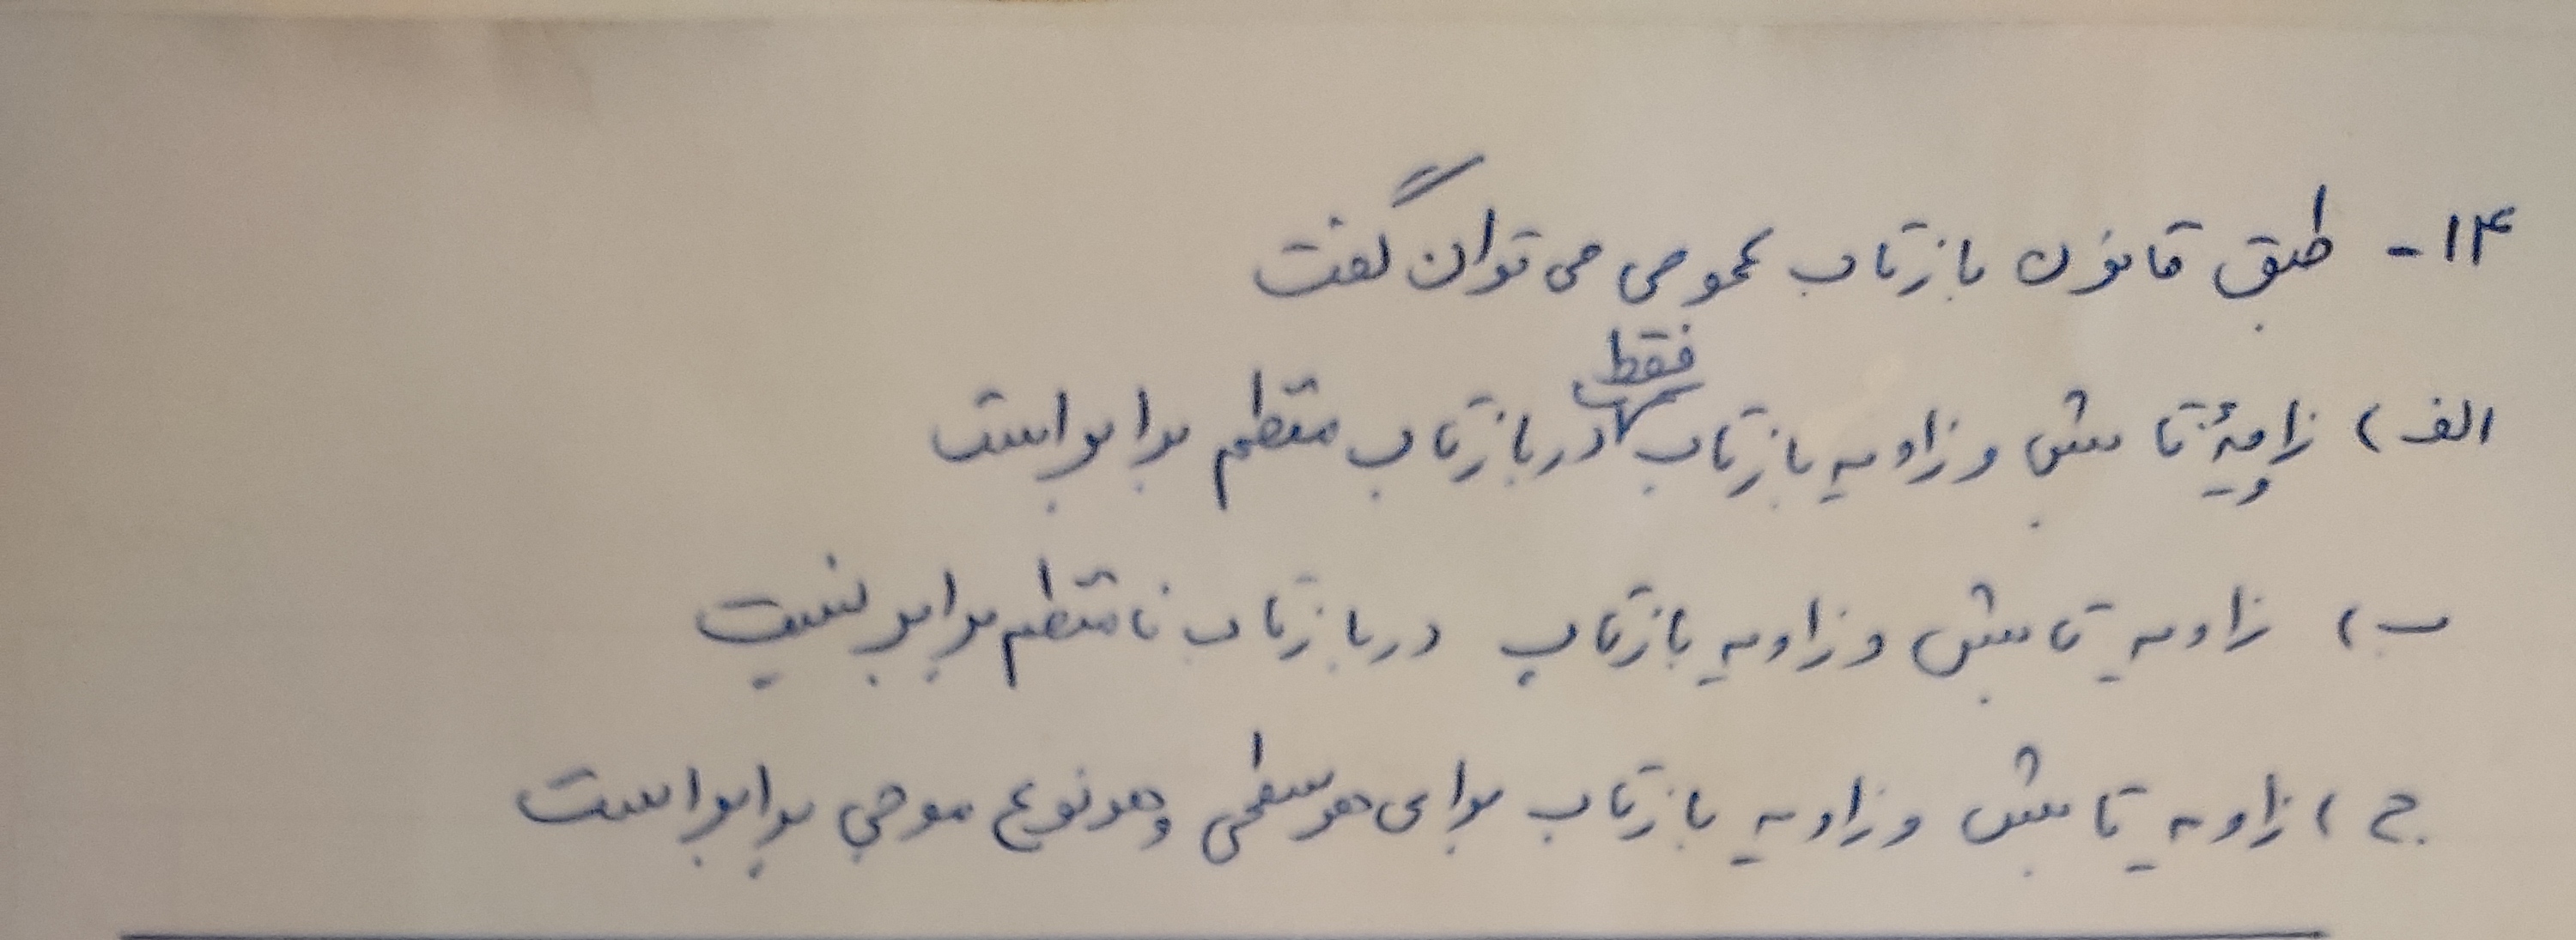 ۱۴- طبق قانون بازتاب عمومی می توان گفت
الف) زاویهٔ تابش و زاویه بازتاب فقط در بازتاب منظم برابر است
ب) زاویه تابش و زاویه بازتاب در بازتاب نامنظم برابر نیست
ج) زاویه تابش و زاویه بازتاب برای هر سطحی و هر نوع موجی برابر است